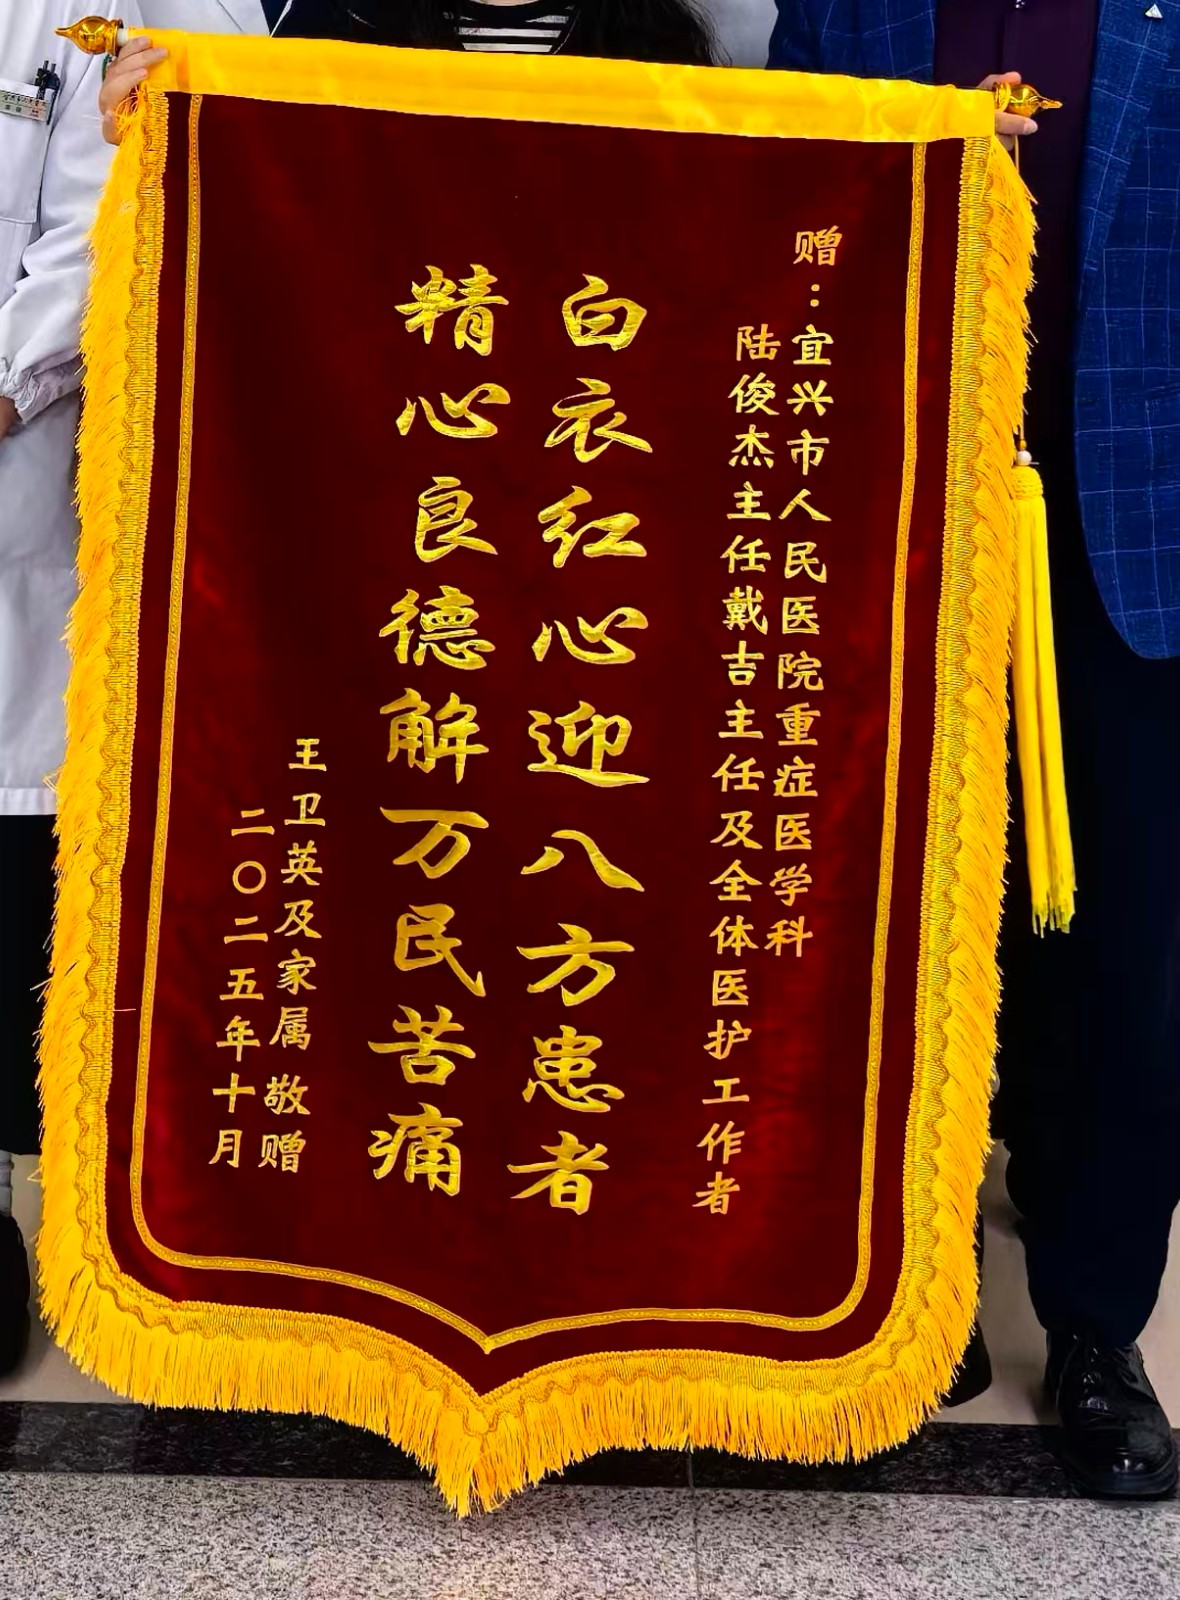 赠：宜兴市人民医院重症医学科
陆俊杰主任戴吉主任及全体医护工作者
白衣红心迎八方患者
精心良德解万民苦痛
王卫英及家属 敬赠
二〇二五年十月